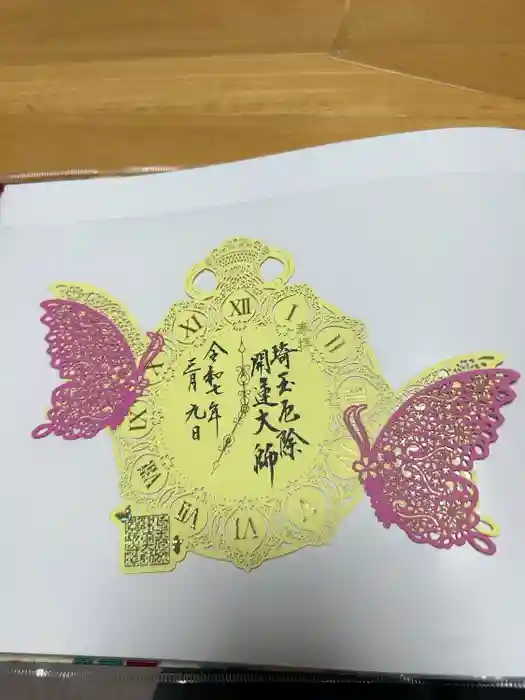 埼玉厄除
開運大師
令和七年
三月九日
XII
I
II
VI
VII
VIII
IX
X
XI